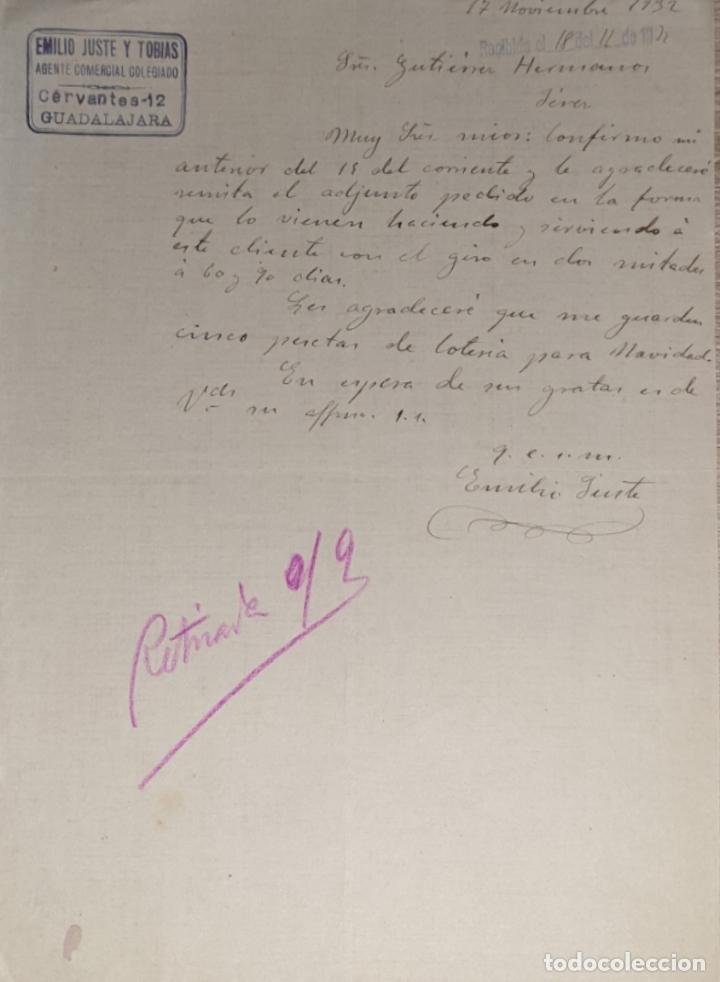 17 Noviembre 1932
EMILIO JUSTE Y TOBIAS
AGENTE COMERCIAL COLEGIADO
Cervantes-12
GUADALAJARA
Recibido el 18 del 11 de 193
Sres. Gutiérrez Hermanos
Muy Sres. mios: Confirmo mi
anterior del 15 del corriente y le agradeceré
remita el adjunto pedido en la forma
que lo vienen haciendo y sirviendo á
este cliente con el giro en dos mitades
á 60 y 90 dias.
Les agradeceré que me guarden
cinco pesetas de loteria para Navidad.
En espera de sus gratas es de
Vds su affmo. s.s.
q. e. s. m.
Emilio Juste
todocoleccion